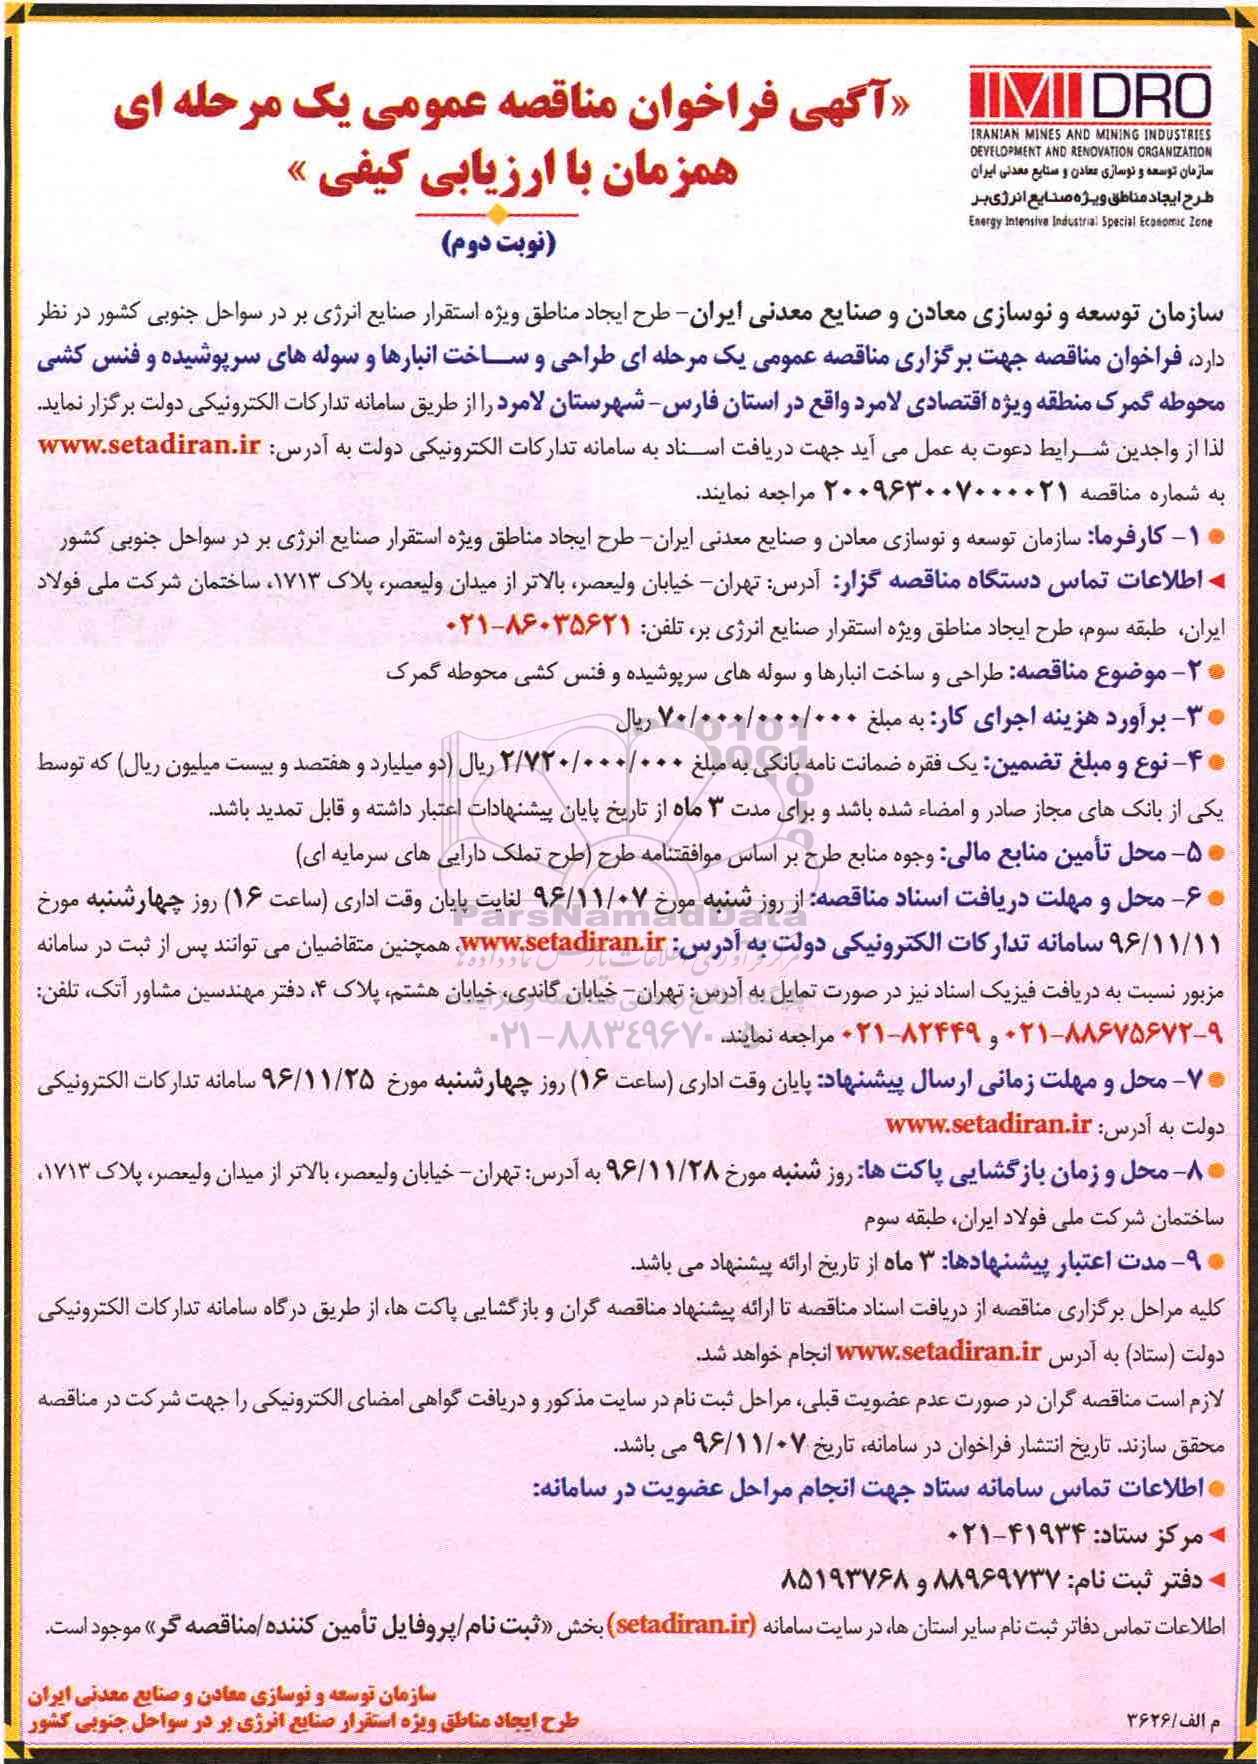 IMIDRO
IRANIAN MINES AND MINING INDUSTRIES
DEVELOPMENT AND RENOVATION ORGANIZATION
سازمان توسعه و نوسازی معادن و صنایع معدنی ایران
طرح ایجاد مناطق ویژه صنایع انرژی بر
Energy Intensive Industrial Special Economic Zone
«آگهی فراخوان مناقصه عمومی یک مرحله ای
همزمان با ارزیابی کیفی»
(نوبت دوم)
سازمان توسعه و نوسازی معادن و صنایع معدنی ایران- طرح ایجاد مناطق ویژه استقرار صنایع انرژی بر در سواحل جنوبی کشور در نظر
دارد، فراخوان مناقصه جهت برگزاری مناقصه عمومی یک مرحله ای طراحی و ساخت انبارها و سوله های سرپوشیده و فنس کشی
محوطه گمرک منطقه ویژه اقتصادی لامرد واقع در استان فارس- شهرستان لامرد را از طریق سامانه تدارکات الکترونیکی دولت برگزار نماید.
لذا از واجدین شرایط دعوت به عمل می آید جهت دریافت اسناد به سامانه تدارکات الکترونیکی دولت به آدرس: www.setadiran.ir
به شماره مناقصه ۲۰۰۹۶۳۰۰۷۰۰۰۰۲۱ مراجعه نمایند.
۱- کارفرما: سازمان توسعه و نوسازی معادن و صنایع معدنی ایران- طرح ایجاد مناطق ویژه استقرار صنایع انرژی بر در سواحل جنوبی کشور
اطلاعات تماس دستگاه مناقصه گزار: آدرس: تهران- خیابان ولیعصر، بالاتر از میدان ولیعصر، پلاک ۱۷۱۳، ساختمان شرکت ملی فولاد
ایران، طبقه سوم، طرح ایجاد مناطق ویژه استقرار صنایع انرژی بر، تلفن: ۸۶۰۳۵۶۲۱-۰۲۱
۲- موضوع مناقصه: طراحی و ساخت انبارها و سوله های سرپوشیده و فنس کشی محوطه گمرک
۳- برآورد هزینه اجرای کار: به مبلغ ۷۰/۰۰۰/۰۰۰/۰۰۰ ریال
۴- نوع و مبلغ تضمین: یک فقره ضمانت نامه بانکی به مبلغ ۲/۷۲۰/۰۰۰/۰۰۰ ریال (دو میلیارد و هفتصد و بیست میلیون ریال) که توسط
یکی از بانک های مجاز صادر و امضاء شده باشد و برای مدت ۳ ماه از تاریخ پایان پیشنهادات اعتبار داشته و قابل تمدید باشد.
۵- محل تأمین منابع مالی: وجوه منابع طرح بر اساس موافقتنامه طرح (طرح تملک دارایی های سرمایه ای)
۶- محل و مهلت دریافت اسناد مناقصه: از روز شنبه مورخ ۹۶/۱۱/۰۷ لغایت پایان وقت اداری (ساعت ۱۶) روز چهارشنبه مورخ
ParsNamadData
۹۶/۱۱/۱۱ سامانه تدارکات الکترونیکی دولت به آدرس: www.setadiran.ir، همچنین متقاضیان می توانند پس از ثبت در سامانه
مزبور نسبت به دریافت فیزیک اسناد نیز در صورت تمایل به آدرس: تهران- خیابان گاندی، خیابان هشتم، پلاک ۴، دفتر مهندسین مشاور آتک، تلفن:
۹-۸۸۶۷۵۶۷۲-۰۲۱ و ۸۲۴۴۹-۰۲۱ مراجعه نمایند.
۰۲۱-۸۸۳۴۹۶۷۰-۵
۷- محل و مهلت زمانی ارسال پیشنهاد: پایان وقت اداری (ساعت ۱۶) روز چهارشنبه مورخ ۹۶/۱۱/۲۵ سامانه تدارکات الکترونیکی
دولت به آدرس: www.setadiran.ir
۸- محل و زمان بازگشایی پاکت ها: روز شنبه مورخ ۹۶/۱۱/۲۸ به آدرس: تهران- خیابان ولیعصر، بالاتر از میدان ولیعصر، پلاک ۱۷۱۳،
ساختمان شرکت ملی فولاد ایران، طبقه سوم
۹- مدت اعتبار پیشنهادها: ۳ ماه از تاریخ ارائه پیشنهاد می باشد.
کلیه مراحل برگزاری مناقصه از دریافت اسناد مناقصه تا ارائه پیشنهاد مناقصه گران و بازگشایی پاکت ها، از طریق درگاه سامانه تدارکات الکترونیکی
دولت (ستاد) به آدرس www.setadiran.ir انجام خواهد شد.
لازم است مناقصه گران در صورت عدم عضویت قبلی، مراحل ثبت نام در سایت مذکور و دریافت گواهی امضای الکترونیکی را جهت شرکت در مناقصه
محقق سازند. تاریخ انتشار فراخوان در سامانه، تاریخ ۹۶/۱۱/۰۷ می باشد.
اطلاعات تماس سامانه ستاد جهت انجام مراحل عضویت در سامانه:
مرکز ستاد: ۴۱۹۳۴-۰۲۱
دفتر ثبت نام: ۸۸۹۶۹۷۳۷ و ۸۵۱۹۳۷۶۸
اطلاعات تماس دفاتر ثبت نام سایر استان ها، در سایت سامانه (setadiran.ir) بخش «ثبت نام/پروفایل تأمین کننده/مناقصه گر» موجود است.
سازمان توسعه و نوسازی معادن و صنایع معدنی ایران
طرح ایجاد مناطق ویژه استقرار صنایع انرژی بر در سواحل جنوبی کشور
م الف/۳۶۲۶